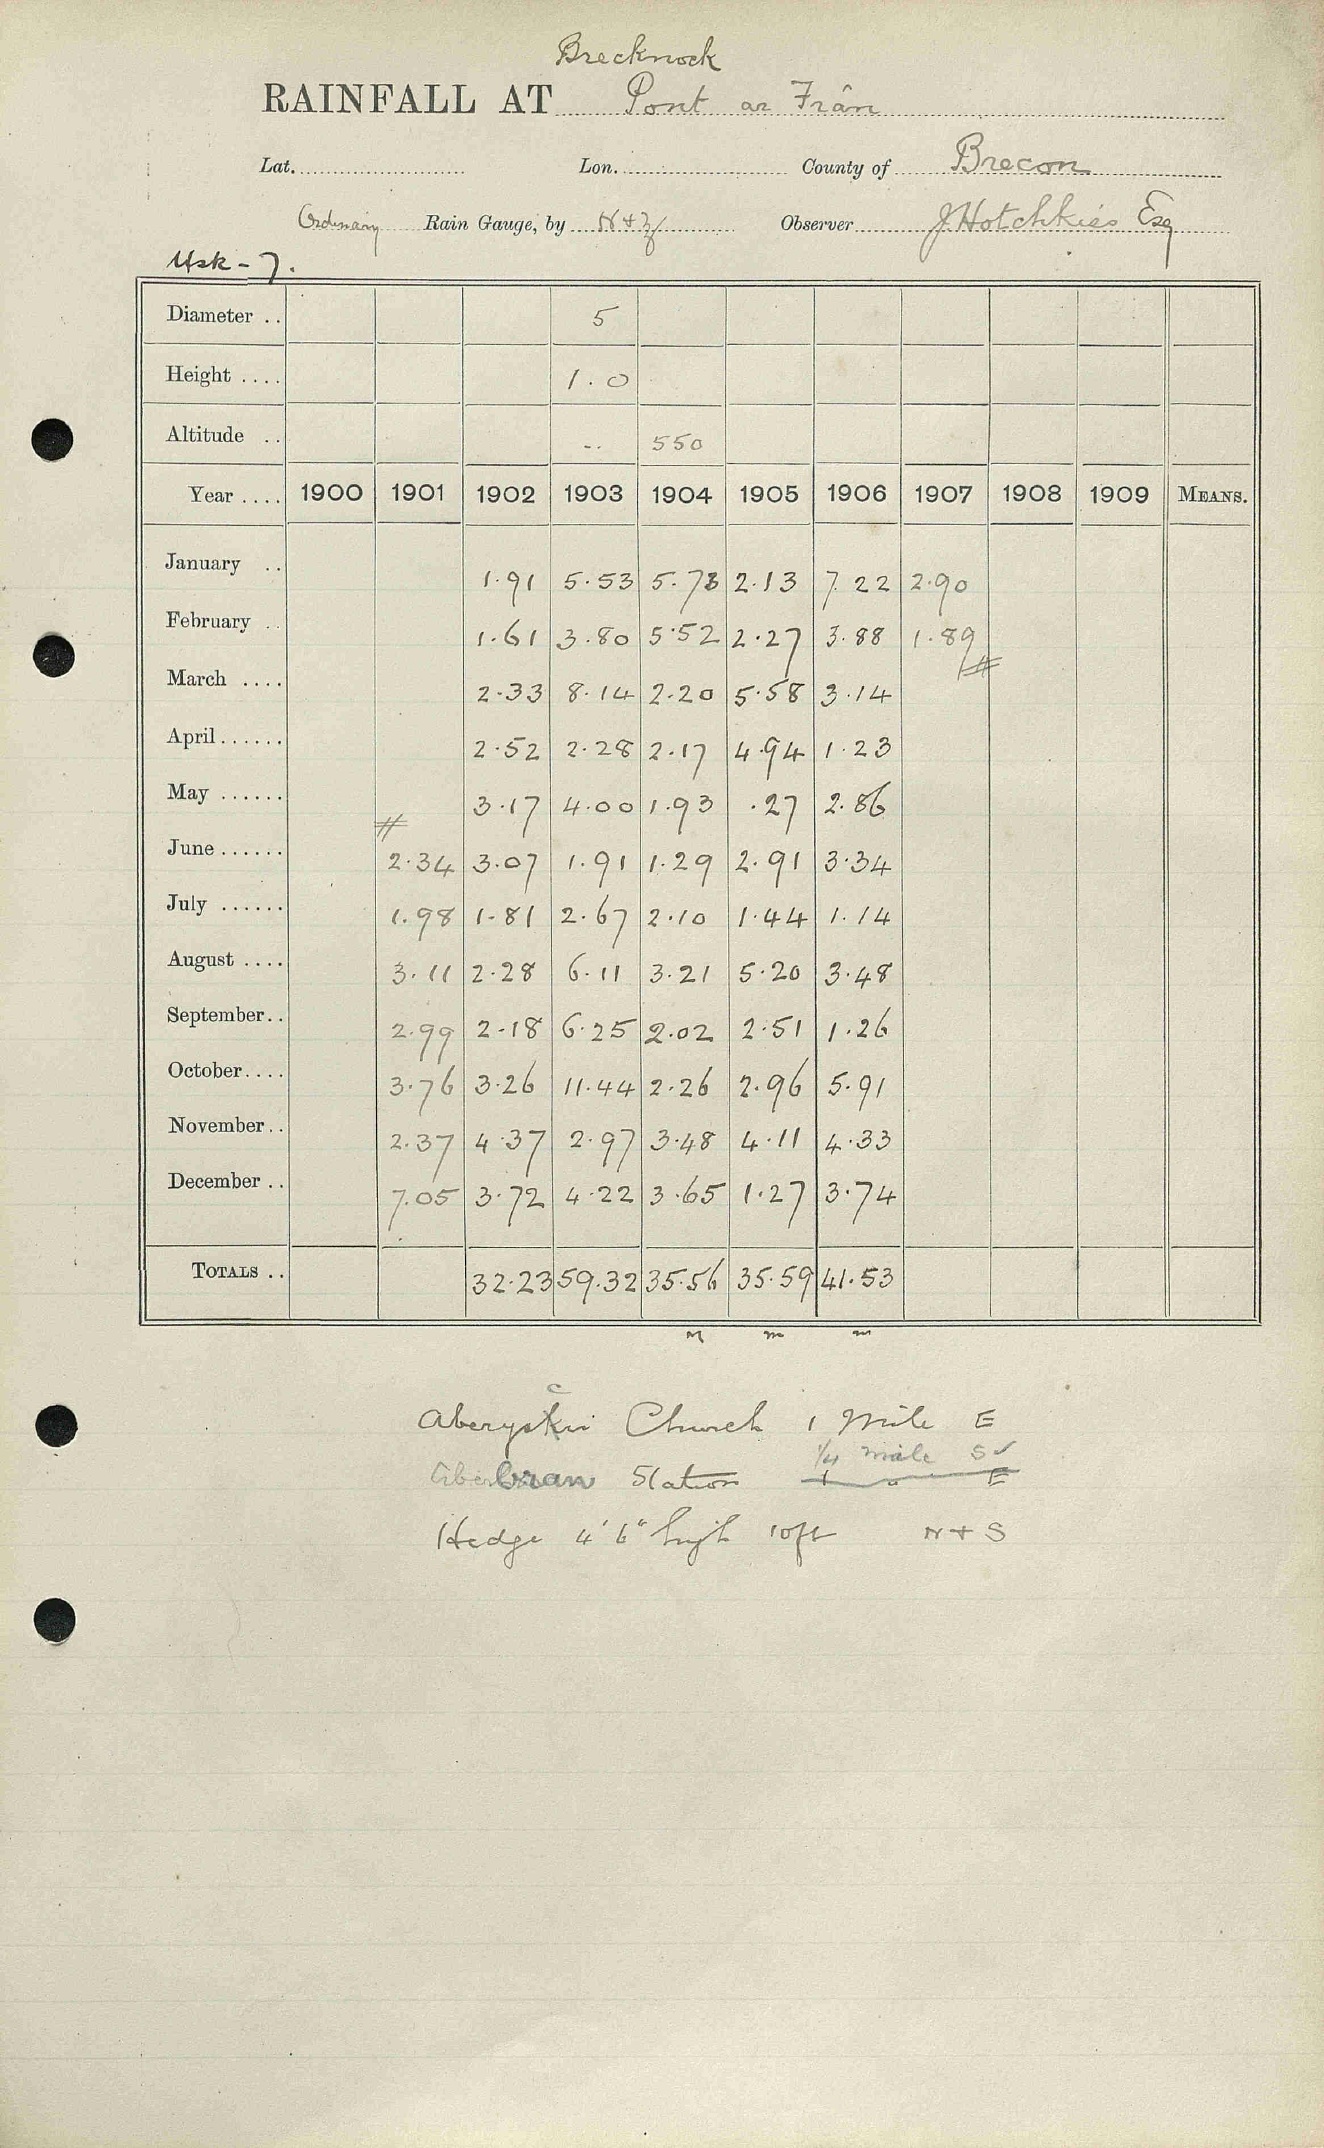 Brecknock
RAINFALL AT Pont ar Frân
Lat. Lon. County of Brecon
Ordinary Rain Gauge, by N + Z Observer J Hotchkies Esq
Usk - 7.
Diameter .. 5
Height .... 1.0
Altitude .. .. 550
Year .... 1900 1901 1902 1903 1904 1905 1906 1907 1908 1909 MEANS.
January .. 1.91 5.53 5.73 2.13 7.22 2.90
February .. 1.61 3.80 5.52 2.27 3.88 1.89
March .... 2.33 8.14 2.20 5.58 3.14
April...... 2.52 2.28 2.17 4.94 1.23
May ...... 3.17 4.00 1.93 .27 2.86
June...... 2.34 3.07 1.91 1.29 2.91 3.34
July ...... 1.98 1.81 2.67 2.10 1.44 1.14
August .... 3.11 2.28 6.11 3.21 5.20 3.48
September.. 2.99 2.18 6.25 2.02 2.51 1.26
October.... 3.76 3.26 11.44 2.26 2.96 5.91
November.. 2.37 4.37 2.97 3.48 4.11 4.33
December .. 7.05 3.72 4.22 3.65 1.27 3.74
TOTALS .. 32.23 59.32 35.56 35.59 41.53
m m m
Church 1 Mile E
1/4 mile S
Aberbran Station E
Hedge 4' 6" high 10ft N + S